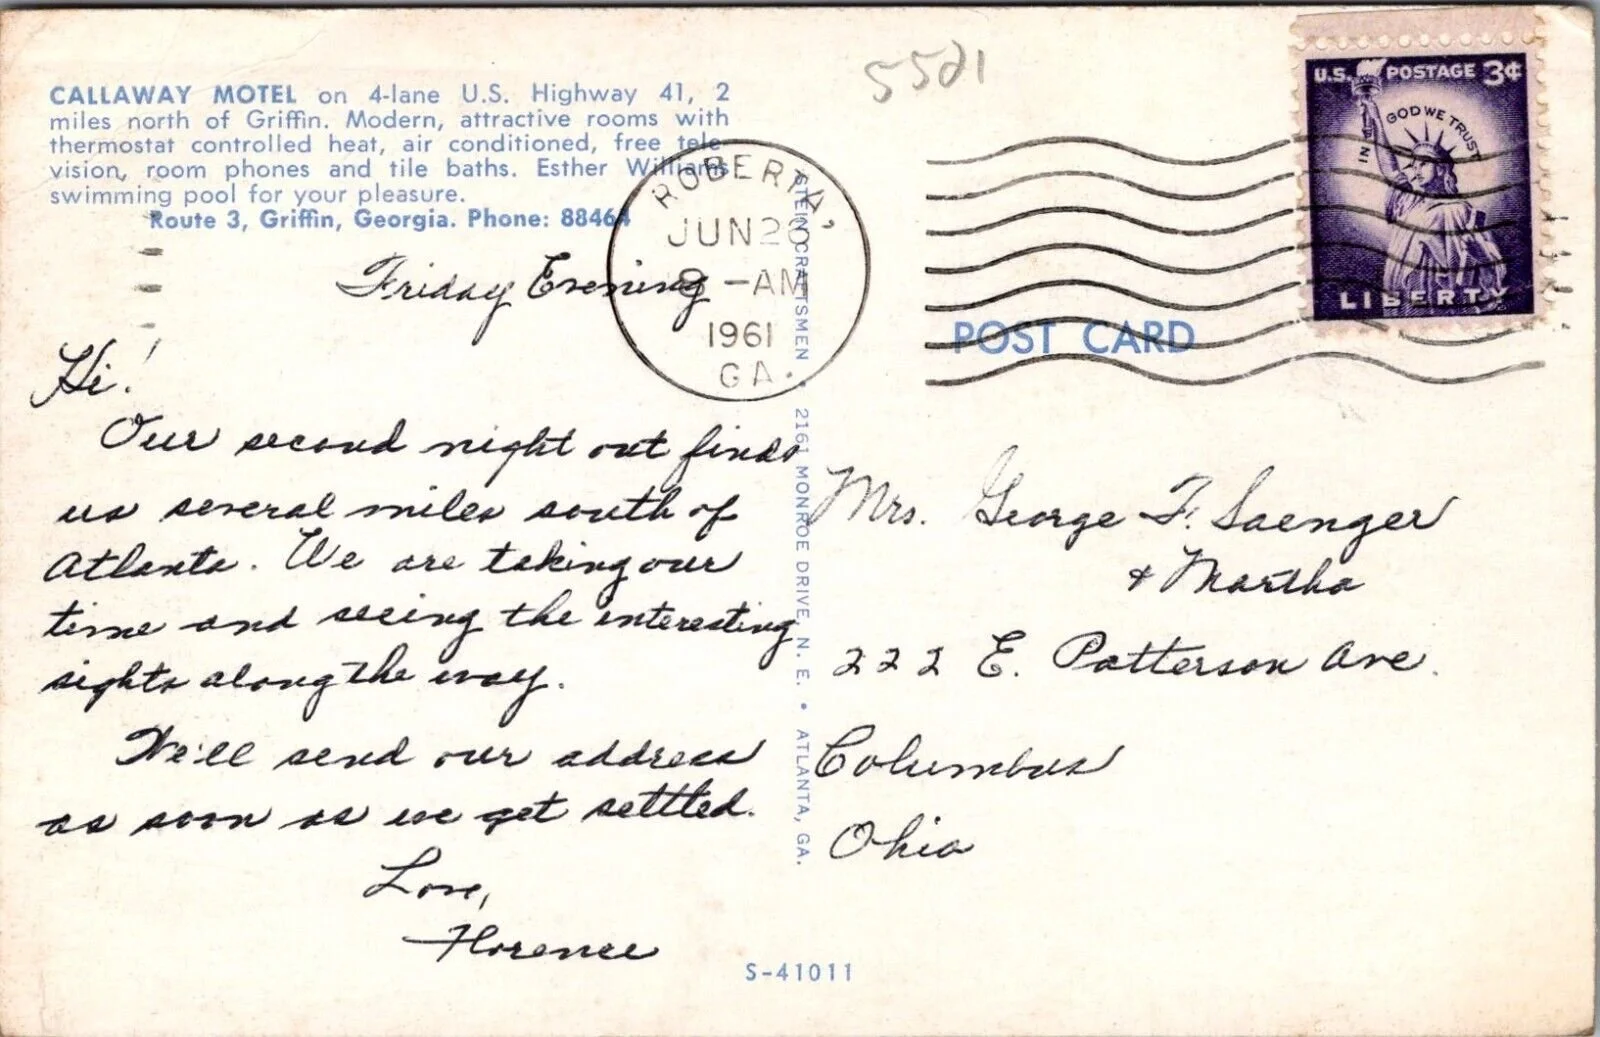 5521
U.S. POSTAGE 3¢
IN GOD WE TRUST
LIBERTY
CALLAWAY MOTEL on 4-lane U.S. Highway 41, 2
miles north of Griffin. Modern, attractive rooms with
thermostat controlled heat, air conditioned, free tele-
vision, room phones and tile baths. Esther Williams
swimming pool for your pleasure.
Route 3, Griffin, Georgia. Phone: 88464
ROBERTA,
JUN
8-AM
1961
GA.
POST CARD
Friday Evening
Hi!
Our second night out finds
us several miles south of
Atlanta. We are taking our
time and seeing the interesting
sights along the way.
We'll send our address
as soon as we get settled.
Love,
Florence
STEIN CRAFTSMEN • 2161 MONROE DRIVE, N. E. • ATLANTA, GA.
Mrs. George F. Saenger
& Martha
222 E. Patterson Ave.
Columbus
Ohio
S-41011